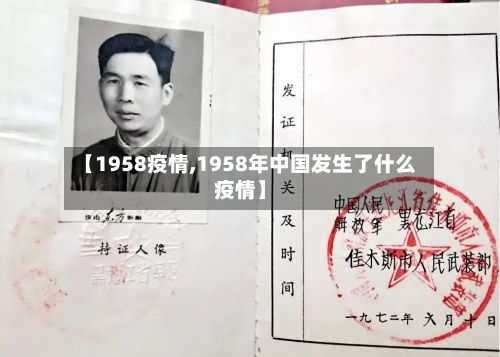 【1958疫情,1958年中国发生了什么
疫情】
佳木斯东方照相
持证人像
黑龙江省军区
发证机关及时间
中国人民
解放军
黑龙江省
佳木斯市人民武装部
一九七二年六月十日